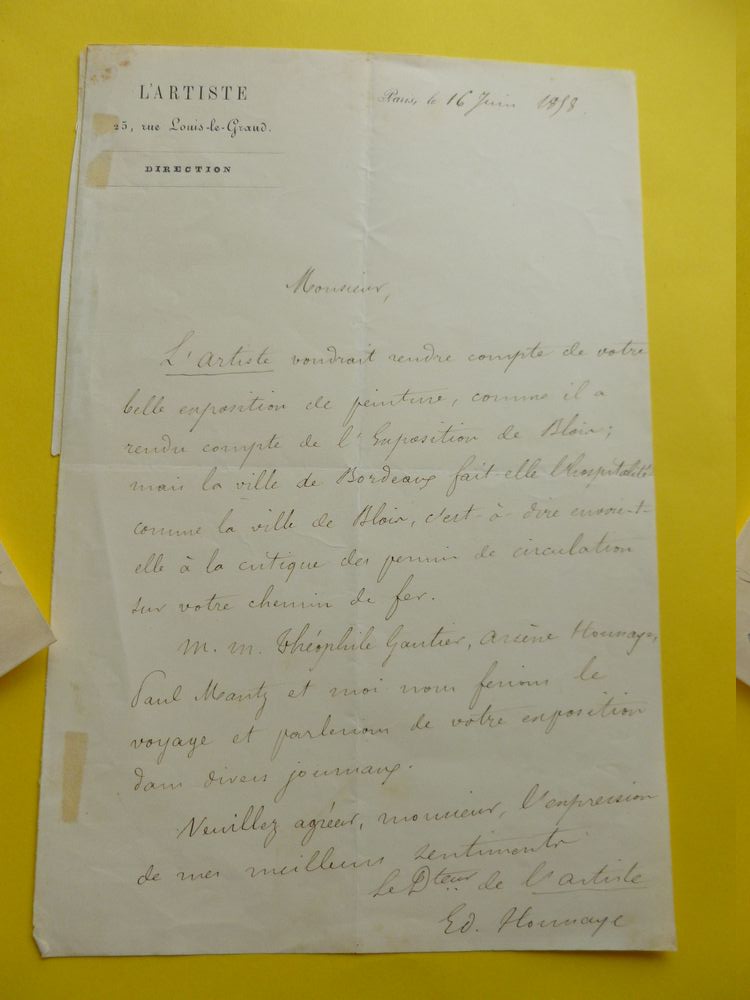 L'ARTISTE
25, rue Louis-le-Grand.
DIRECTION
Paris, le 16 Juin 1858
Monsieur,
L'artiste voudrait rendre compte de votre
belle exposition de peinture, comme il a
rendu compte de l'Exposition de Blois;
mais la ville de Bordeaux fait-elle l'hospitalité
comme la ville de Blois, c'est-à-dire envoie-t-
elle à la critique des permis de circulation
sur votre chemin de fer.
M. M. Théophile Gautier, Arsène Houssaye,
Paul Mantz et moi nous ferions le
voyage et parlerions de votre exposition
dans divers journaux.
Veuillez agréer, monsieur, l'expression
de mes meilleurs sentiments
Le Dteur de l'artiste
Ed. Houssaye